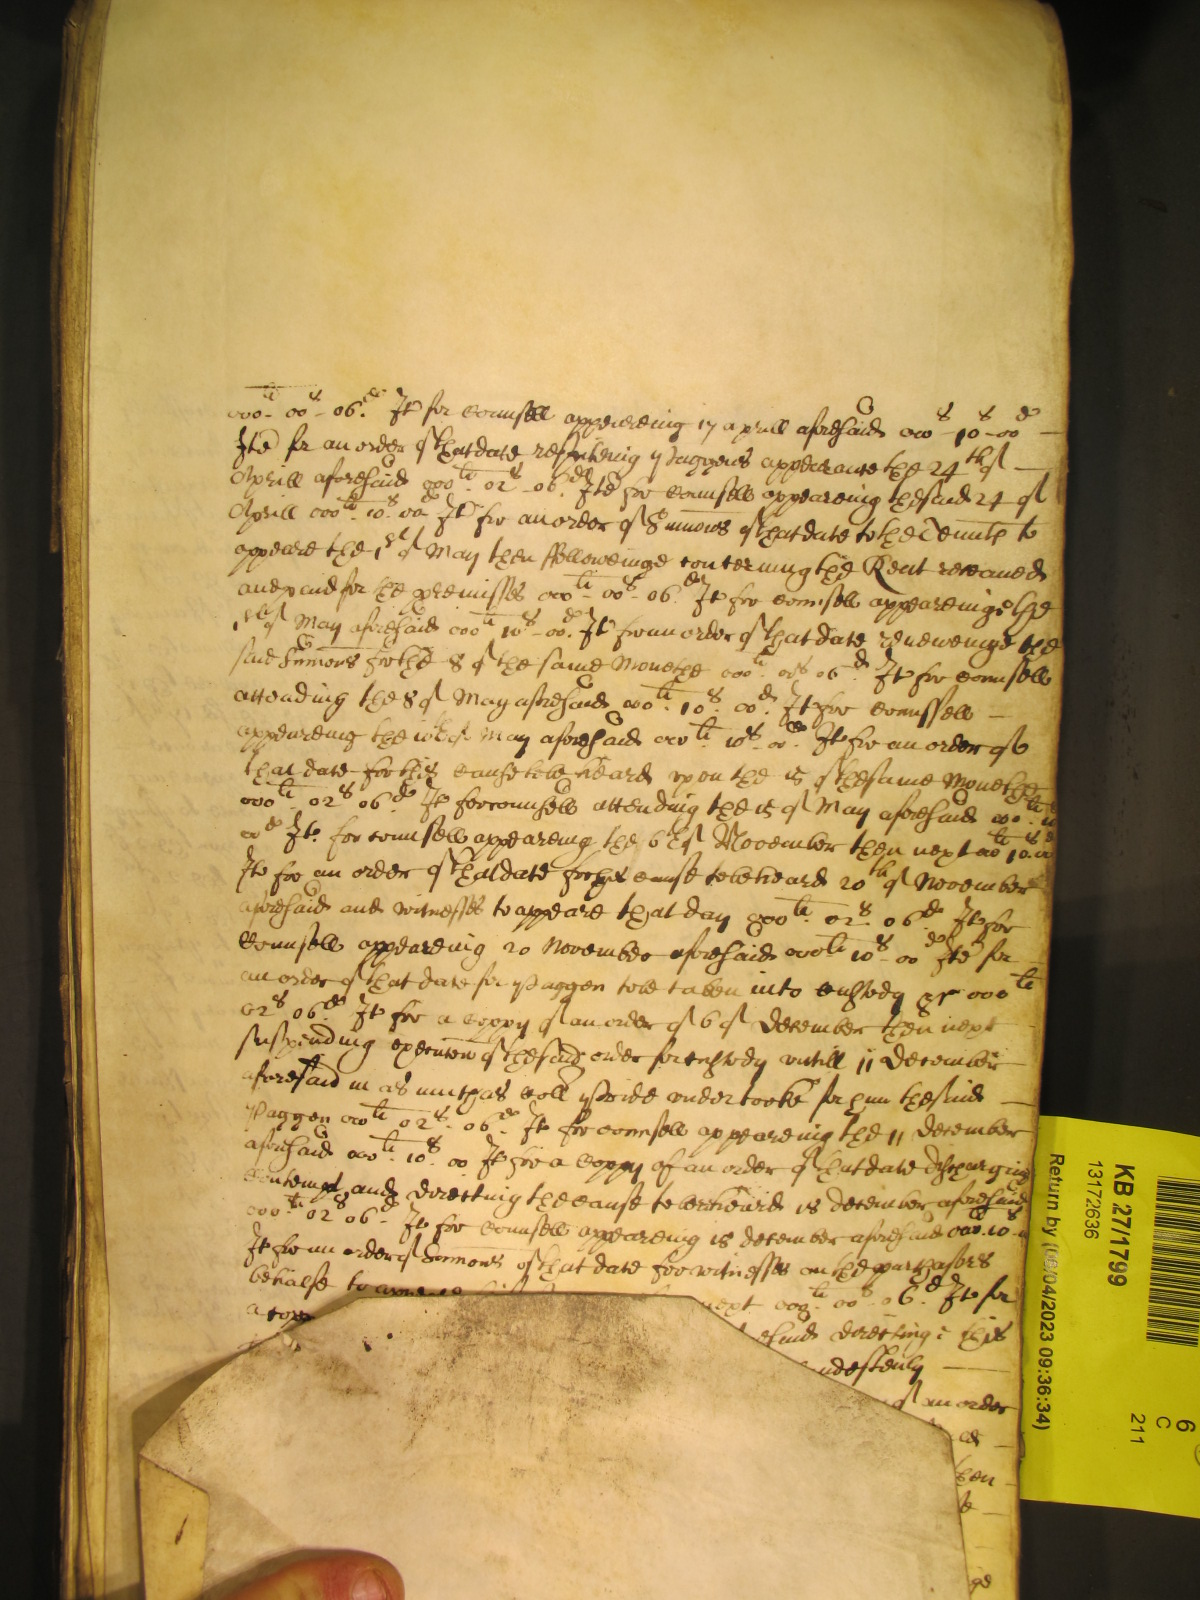 000li 00s - 06d. It for Counsell appeareing 17 aprill aforesaid 000 - 10s - 00d
Itē for an order of that date respiteing Paggens appearance the 24th of
Aprill aforesaid 000li 02s 06d. Itē for Counsell appeareing the said 24 of
Aprill 000li 10s 00d It for an order of Sumons of that date to the Tennts to
appeare the 1st of May then followeinge concerning the Rent receaued
and paid for the premisses 000li - 00s - 06d It for Counsell appeareinge the
1st of May aforesaid 000li 10s - 00d. It for an order of that date reneweinge the
said Sumons for the 8 of the same Monethe 000li 00s 06d It for Counsell
attending the 8 of May aforesaid 000li 10s 00d. It for Counsell
appeareing the 10th of May aforesaid 000li. 10s - 00d. It for an order of
that date for this cause to be heard vpon the 15 of the same Monethe
000li 02s 06d It for Counsell attending the 15 of May aforesaid 000li 10
00d Ito for Counsell appeareing the 6th of November then next 000li 10s 00
Ito for an order of that date for this cause to be heard 20th of November
aforesaid and witnesses to appeare that day 000li. 02s. 06d It for
Counsell appeareing 20 November aforesaid 000li 10s - 00d Itē for
an order of that date for Paggen to be taken into custody 000li
02s 06d It for a Coppy of an order of 6 of December then next
suspending execucon of the said order for custody vntill 11 December
aforesaid in as much as Coll Pride vndertooke for him the said
Paggen 000li 02s. 06d It for Counsell appeareing the 11 December
aforesaid 000li 10s. 00 It for a Coppy of an order of that date dischargeing
Contempt and directing the cause to be heard 18 December aforesaid
000li 02s 06d It for Counsell appeareing 18 December aforesaid 000li 10s
It for an order of Somons of that date for witnesses on the purchasors
behalfe to next 000li 00s - 06d It for
a directing this
of an order
KB 27/1799
13172636
Return by (04/2023 09:36:34)
6
C
211